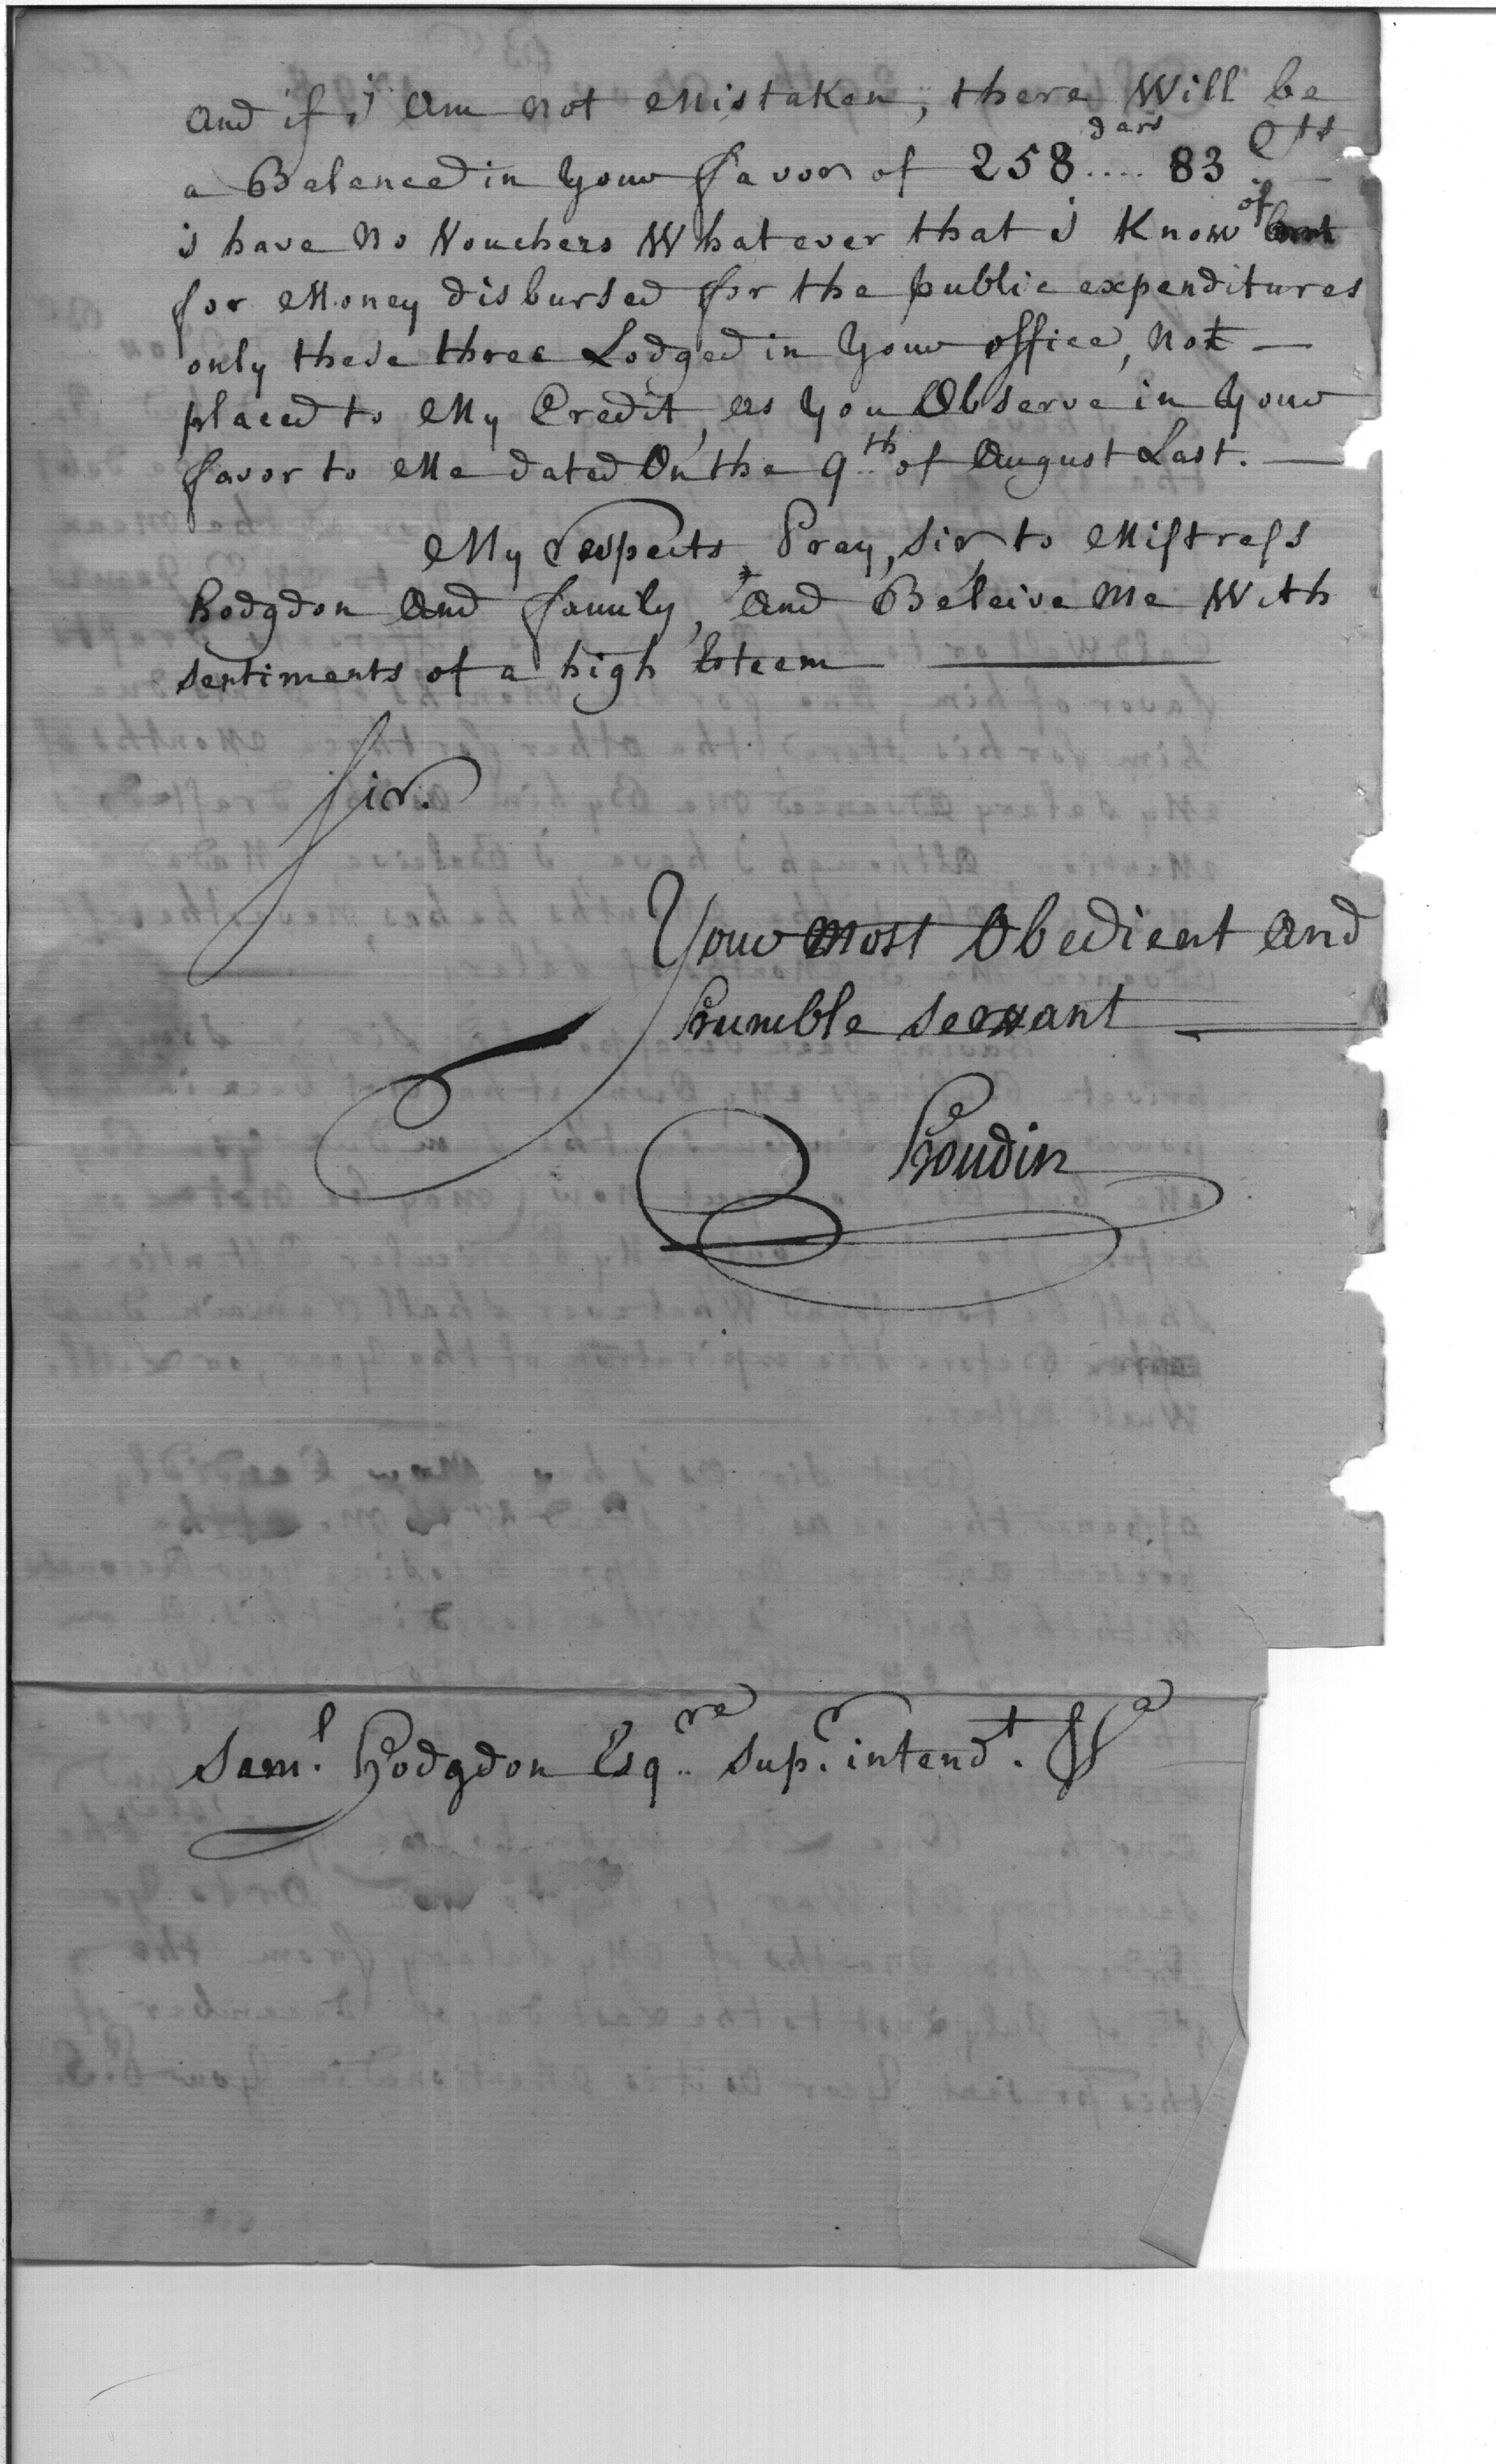 and if i am not Mistaken, there Will be
a Balance in Your favor of 258 dars .... 83 Cts
i have No Vouchers Whatever that i Know of
for Money disbursed for the public expenditures
only these three Lodged in Your office, Not —
placed to My Credit, as You Observe in Your
favor to Me dated On the 9th of August Last. —
My respects, Pray, sir, to Mistress
hodgdon And family, And Beleive Me With
sentiments of a high Esteem —
Sir.
Your Most Obedient And
humble servant —
houdin
Saml. hodgdon Esqre Supr.intendt. &a